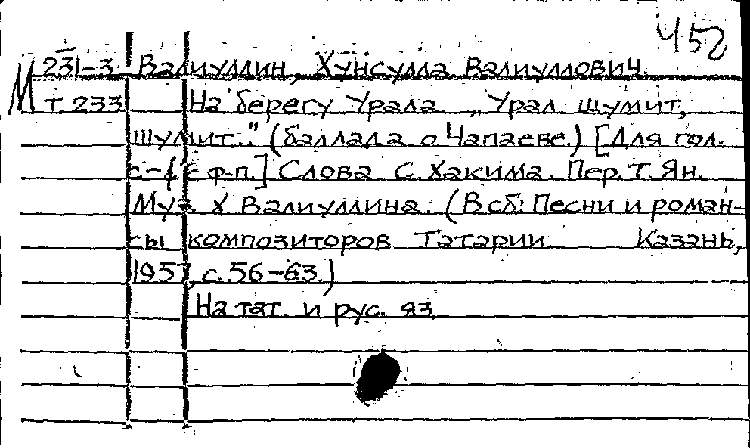 452
М 231-3 Валиуллин, Хунсулла Валиуллович
т. 233 На берегу Урала „Урал шумит,
шумит..." (баллада о Чапаеве.) [Для гол.
с ф-п.] Слова С. Хакима. Пер. Т. Ян.
Муз. Х Валиуллина. (В сб: Песни и роман-
сы композиторов Татарии Казань,
1957, с. 56-63.)
На тат. и рус. яз